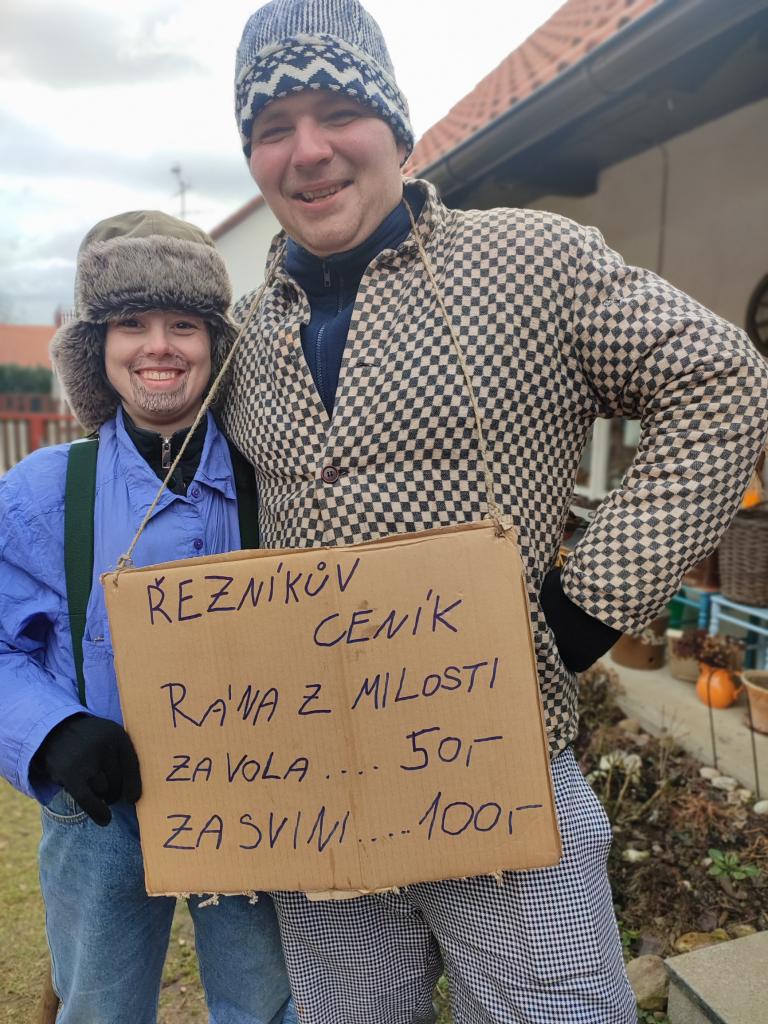 ŘEZNÍKŮV
CENÍK
RÁNA Z MILOSTI
ZA VOLA .... 50,-
ZA SVINI .... 100,-